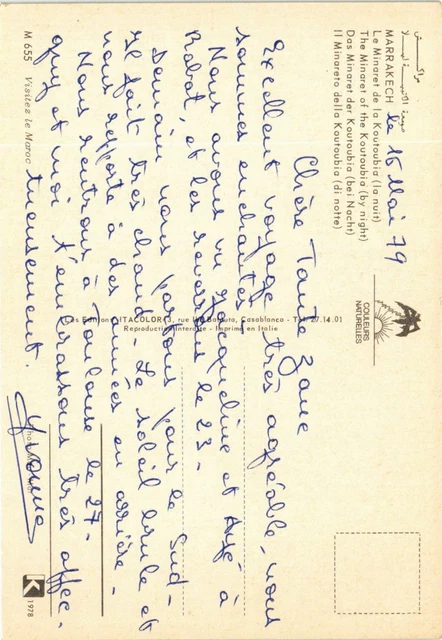 مراكش
MARRAKECH le 15 Mai 79
Le Minaret de la Koutoubia (la nuit)
The Minaret of the Koutoubia (by night)
Das Minaret der Koutoubia (bei Nacht)
Il Minareto della Koutoubia (di notte)
COULEURS
NATURELLES
Chère Tante Zane
Excellent voyage très agréable, nous
sommes enchantés!
Nous avons vu Jacqueline et à
Rabat, et les reverrons le 23 -
Demain nous partons pour le Sud -
Il fait très chaud - Le soleil brule et
nous reporte à des années en arrière -
Nous rentrons à Toulouse le 27 -
Guy et moi t'embrassons très affec-
tueusement.
Yvonne
Les Editions ITACOLOR 3, rue Ibn Batouta, Casablanca - Tél. 27.14.01
Reproduction interdite - Imprimé en Italie
M 655 Visitez le Maroc
K
1978